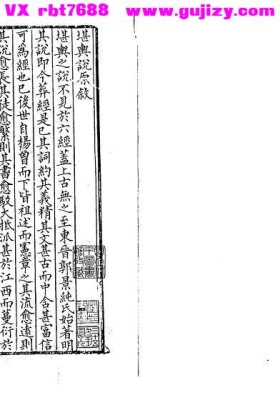 VX rbt7688  www.gujizy.com
堪輿說原敘
堪輿之說不見於六經蓋上古無之至東晉郭景純氏始著明
其說即今葬經是已其詞約其義精其文甚古而中含甚富信
可為經也已後世自楊曾而下皆祖述而憲章之其流愈遠則
其說愈長其徒愈繁則其書愈駁大抵派甚於江西而蔓衍於